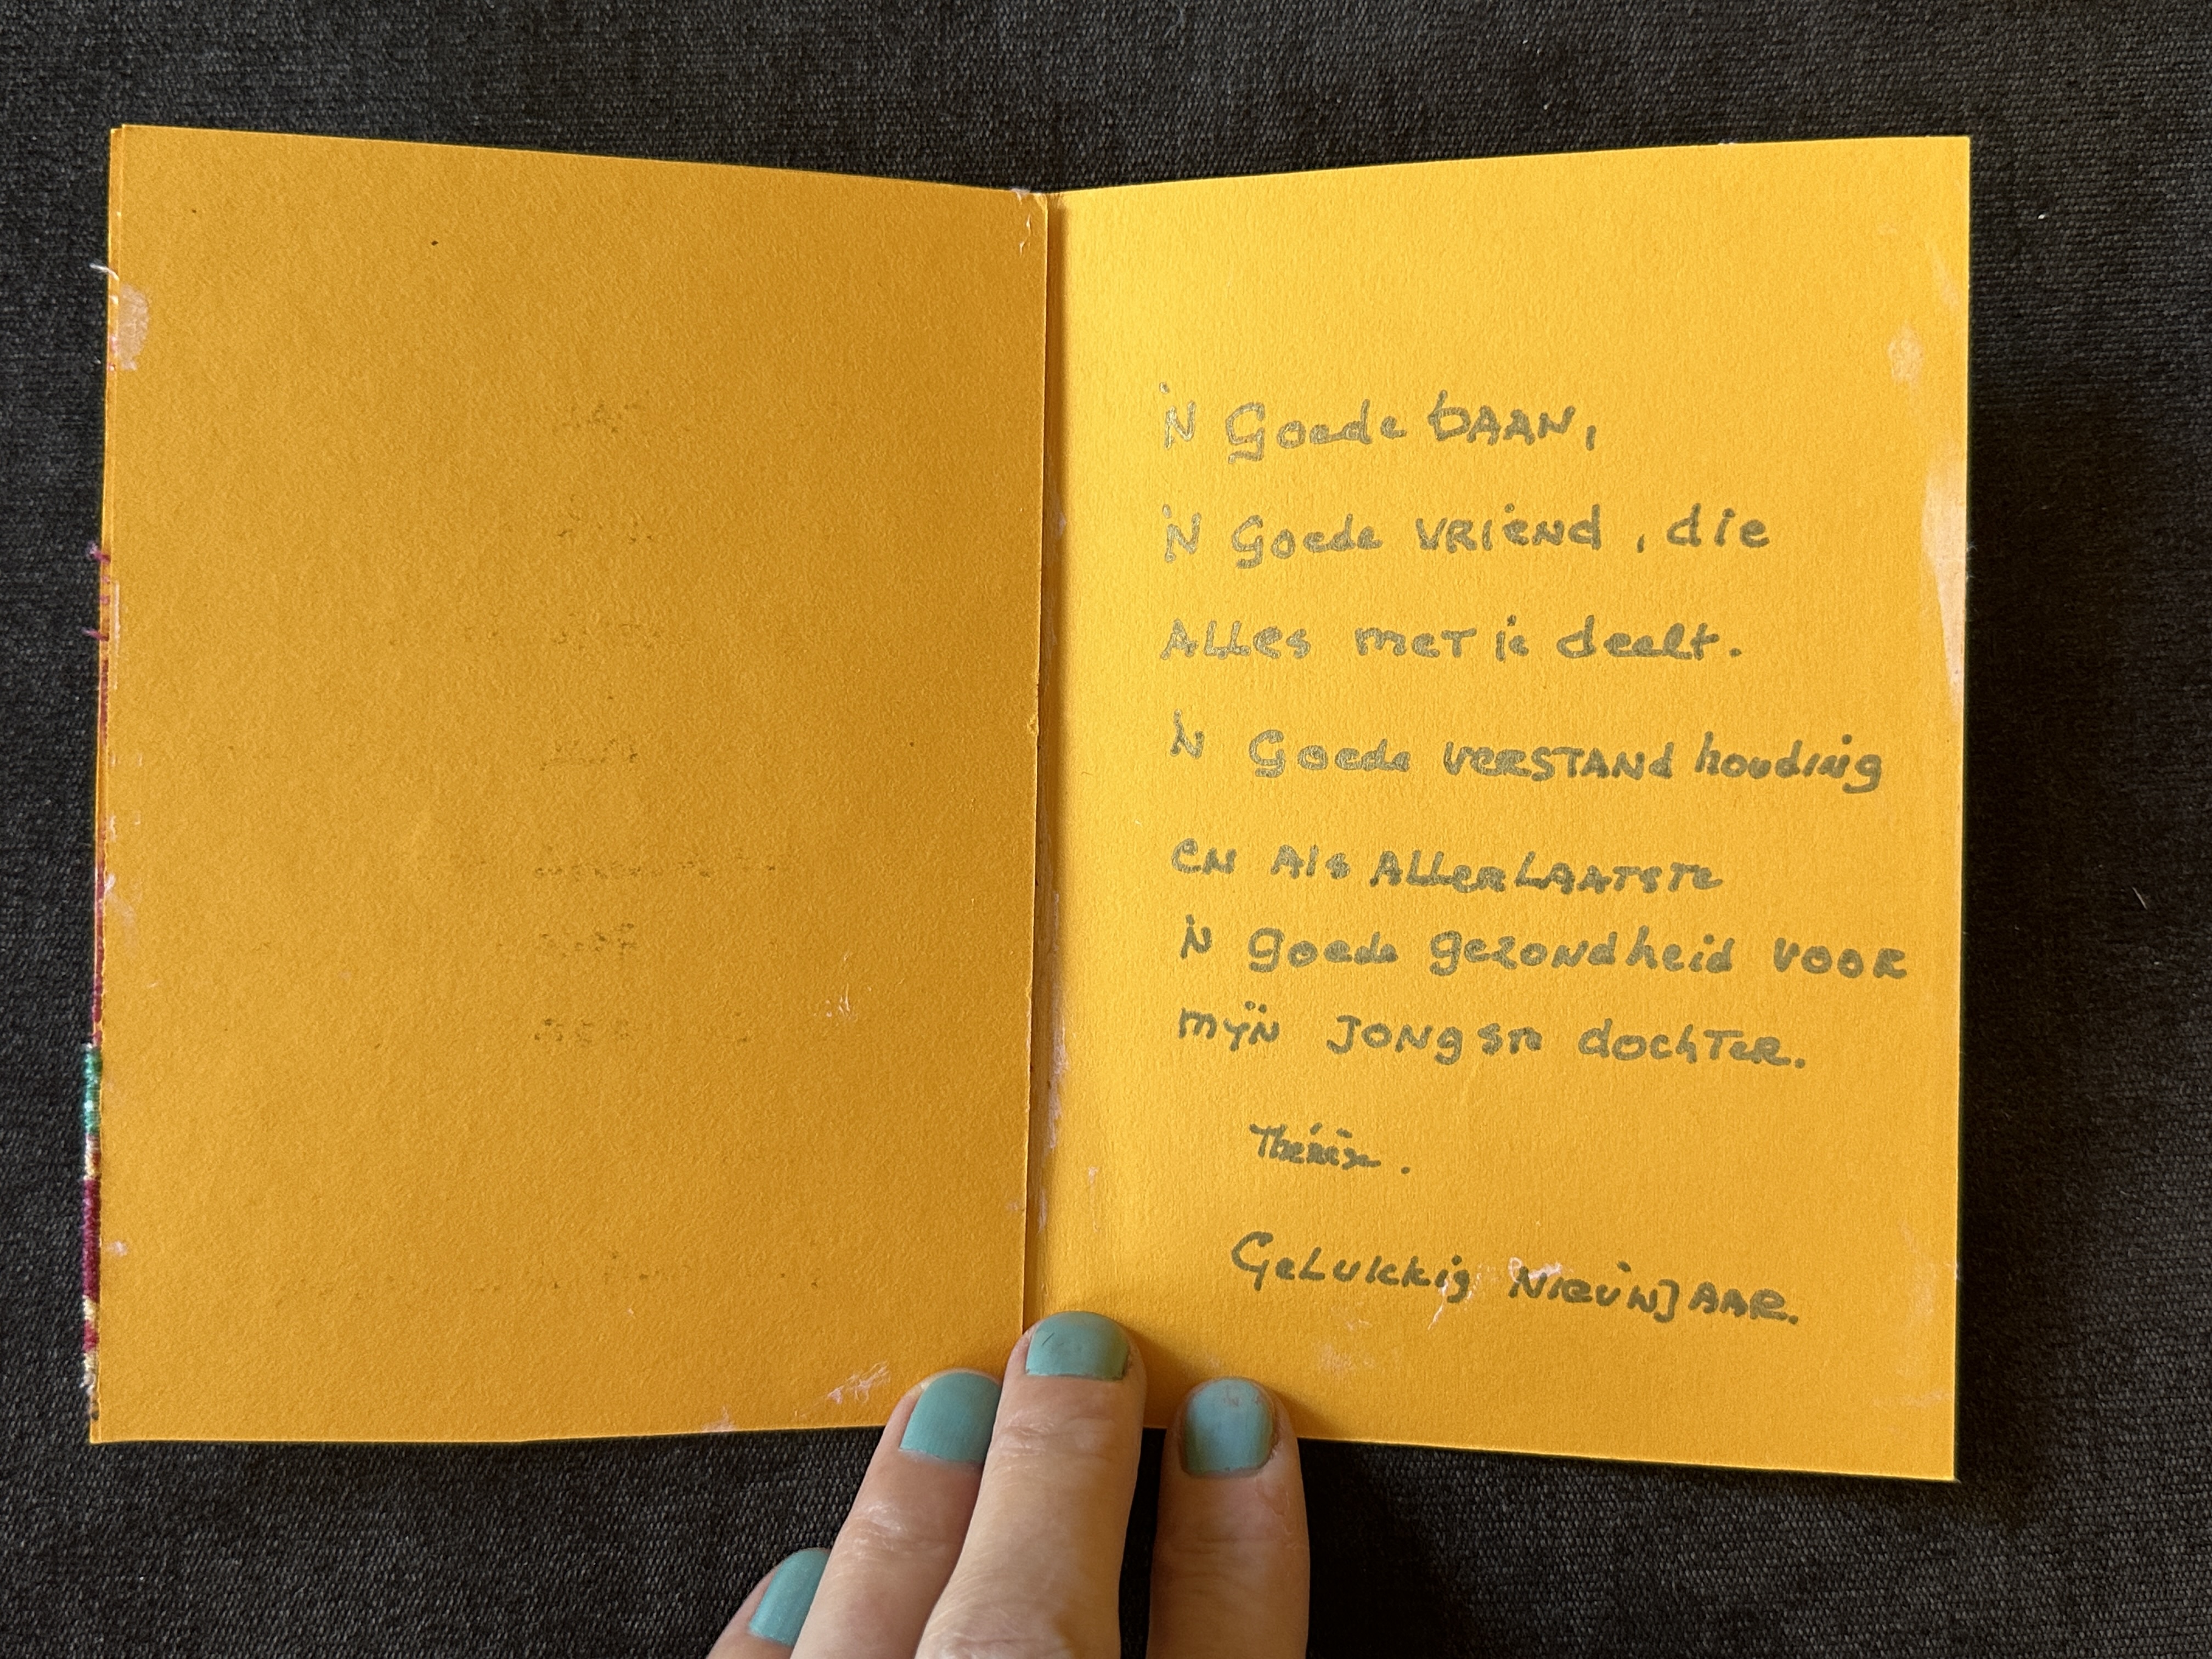 'N Goede BAAN,
'N Goede VRIEND, die
ALLES MET je deelt.
'N Goede VERSTANDhouding
EN Als ALLERLAATSTE
'N goede gezondheid VOOR
MijN JONgste dochTER.
Thérèse.
GeLukkig NIEUWJAAR.